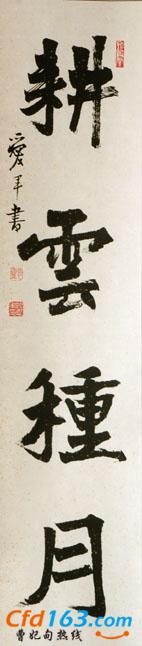 耕雲種月
愛军書
Cfd163.com
曹妃甸热线